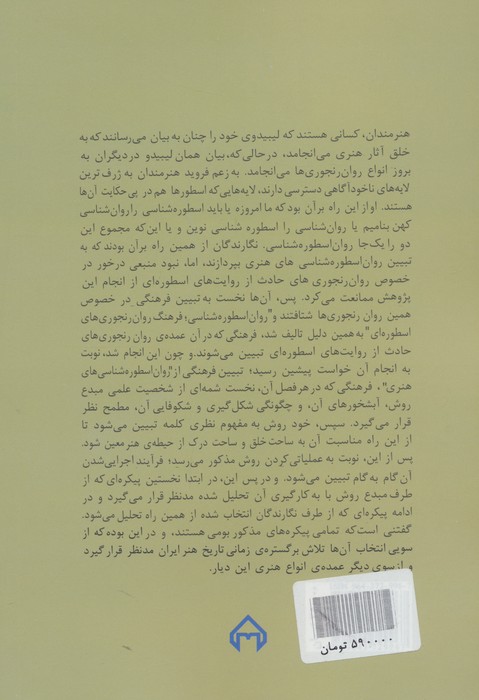 هنرمندان، کسانی هستند که لیبیدوی خود را چنان به بیان می‌رسانند که به
خلق آثار هنری می‌انجامد، درحالی‌که، بیان همان لیبیدو در دیگران به
بروز انواع روان‌رنجوری‌ها می‌انجامد. به زعم فروید هنرمندان به ژرف ترین
لایه‌های ناخودآگاهی دسترسی دارند، لایه‌هایی‌که اسطورها هم در پی حکایت آن‌ها
هستند. او از این راه برآن بود که ما امروزه یا باید اسطوره‌شناسی را روان‌شناسی
کهن بنامیم یا روان‌شناسی را اسطوره شناسی نوین و یا این‌که مجموع این
دو را یک‌جا روان‌اسطوره‌شناسی. نگارندگان از همین راه برآن بودند که به
تبیین روان‌اسطوره‌شناسی های هنری بپردازند، اما، نبود منبعی درخور در
خصوص روان‌رنجوری های حادث از روایت‌های اسطوره‌ای از انجام این
پژوهش ممانعت می‌کرد. پس، آن‌ها نخست به تبیین فرهنگی در خصوص
همین روان رنجوری‌ها شتافتند و"روان‌اسطوره‌شناسی؛ فرهنگ روان‌رنجوری‌های
اسطوره‌ای" به همین دلیل تالیف شد، فرهنگی که در آن عمده‌ی روان رنجوری‌های
حادث از روایت‌های اسطوره‌ای تبیین می‌شوند.و چون این انجام شد، نوبت
به انجام آن خواست پیشین رسید؛ تبیین فرهنگی از"روان‌اسطوره‌شناسی‌های
هنری"، فرهنگی که در هر فصل آن، نخست شمه‌ای از شخصیت علمی مبدع
روش، آبشخورهای آن، و چگونگی شکل‌گیری و شکوفایی آن، مطمح نظر
قرار می‌گیرد. سپس، خود روش به مفهوم نظری کلمه تبیین می‌شود تا
از این راه مناسبت آن به ساحت خلق و ساحت درک از حیطه‌ی هنر معین شود.
پس از این، نوبت به عملیاتی‌کردن روش مذکور می‌رسد؛ فرآیند اجرایی‌شدن
آن گام به گام تبیین می‌شود. و در پس این، در ابتدا نخستین پیکره‌ای که از
طرف مبدع روش با به کارگیری آن تحلیل شده مدنظر قرار می‌گیرد و در
ادامه پیکره‌ای که از طرف نگارندگان انتخاب شده از همین راه تحلیل می‌شود.
گفتنی است‌که تمامی پیکره‌های مذکور بومی هستند، و در این بوده که از
سویی انتخاب آن‌ها تلاش برگستره‌ی زمانی تاریخ هنر ایران مدنظر قرار گیرد
و از سوی دیگر عمده‌ی انواع هنری این دیار.
۵۹۰۰۰۰ تومان